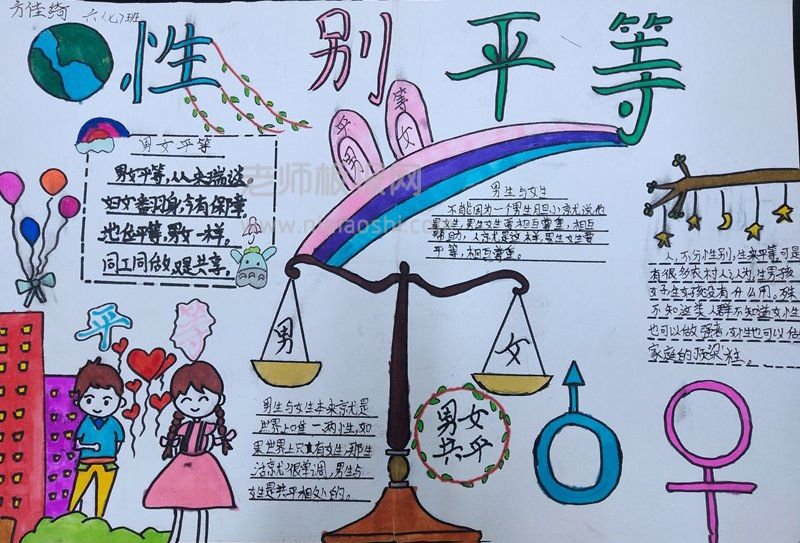 方佳绮 六(七)班
性别平等
平等
男女
男女平等
男女平等,从来瑞谈
妇女委屈身,今有保障
地位平等,男女一样。
同工同做,又是共享。
老师板报网
男生与女生
不能因为一个男生胆小京尤说他
男女生,男生女生要相互尊重,相互
帮助,人京尤是这样,男生女生要
平等,相互尊重。
人,不分性别,生来平等,可是
有很多农村人认为,生男孩
女子生女孩没有什么用。殊
不知这类人群不知道女性
也可以做强者,女性也可以做
家庭的顶梁柱。
平 等
男
女
男生与女生生来京尤是
世界上唯一两性,如
果世界上只有女生,那生
活京尤很单调,男生与
女生是共平相处的。
男女
共平